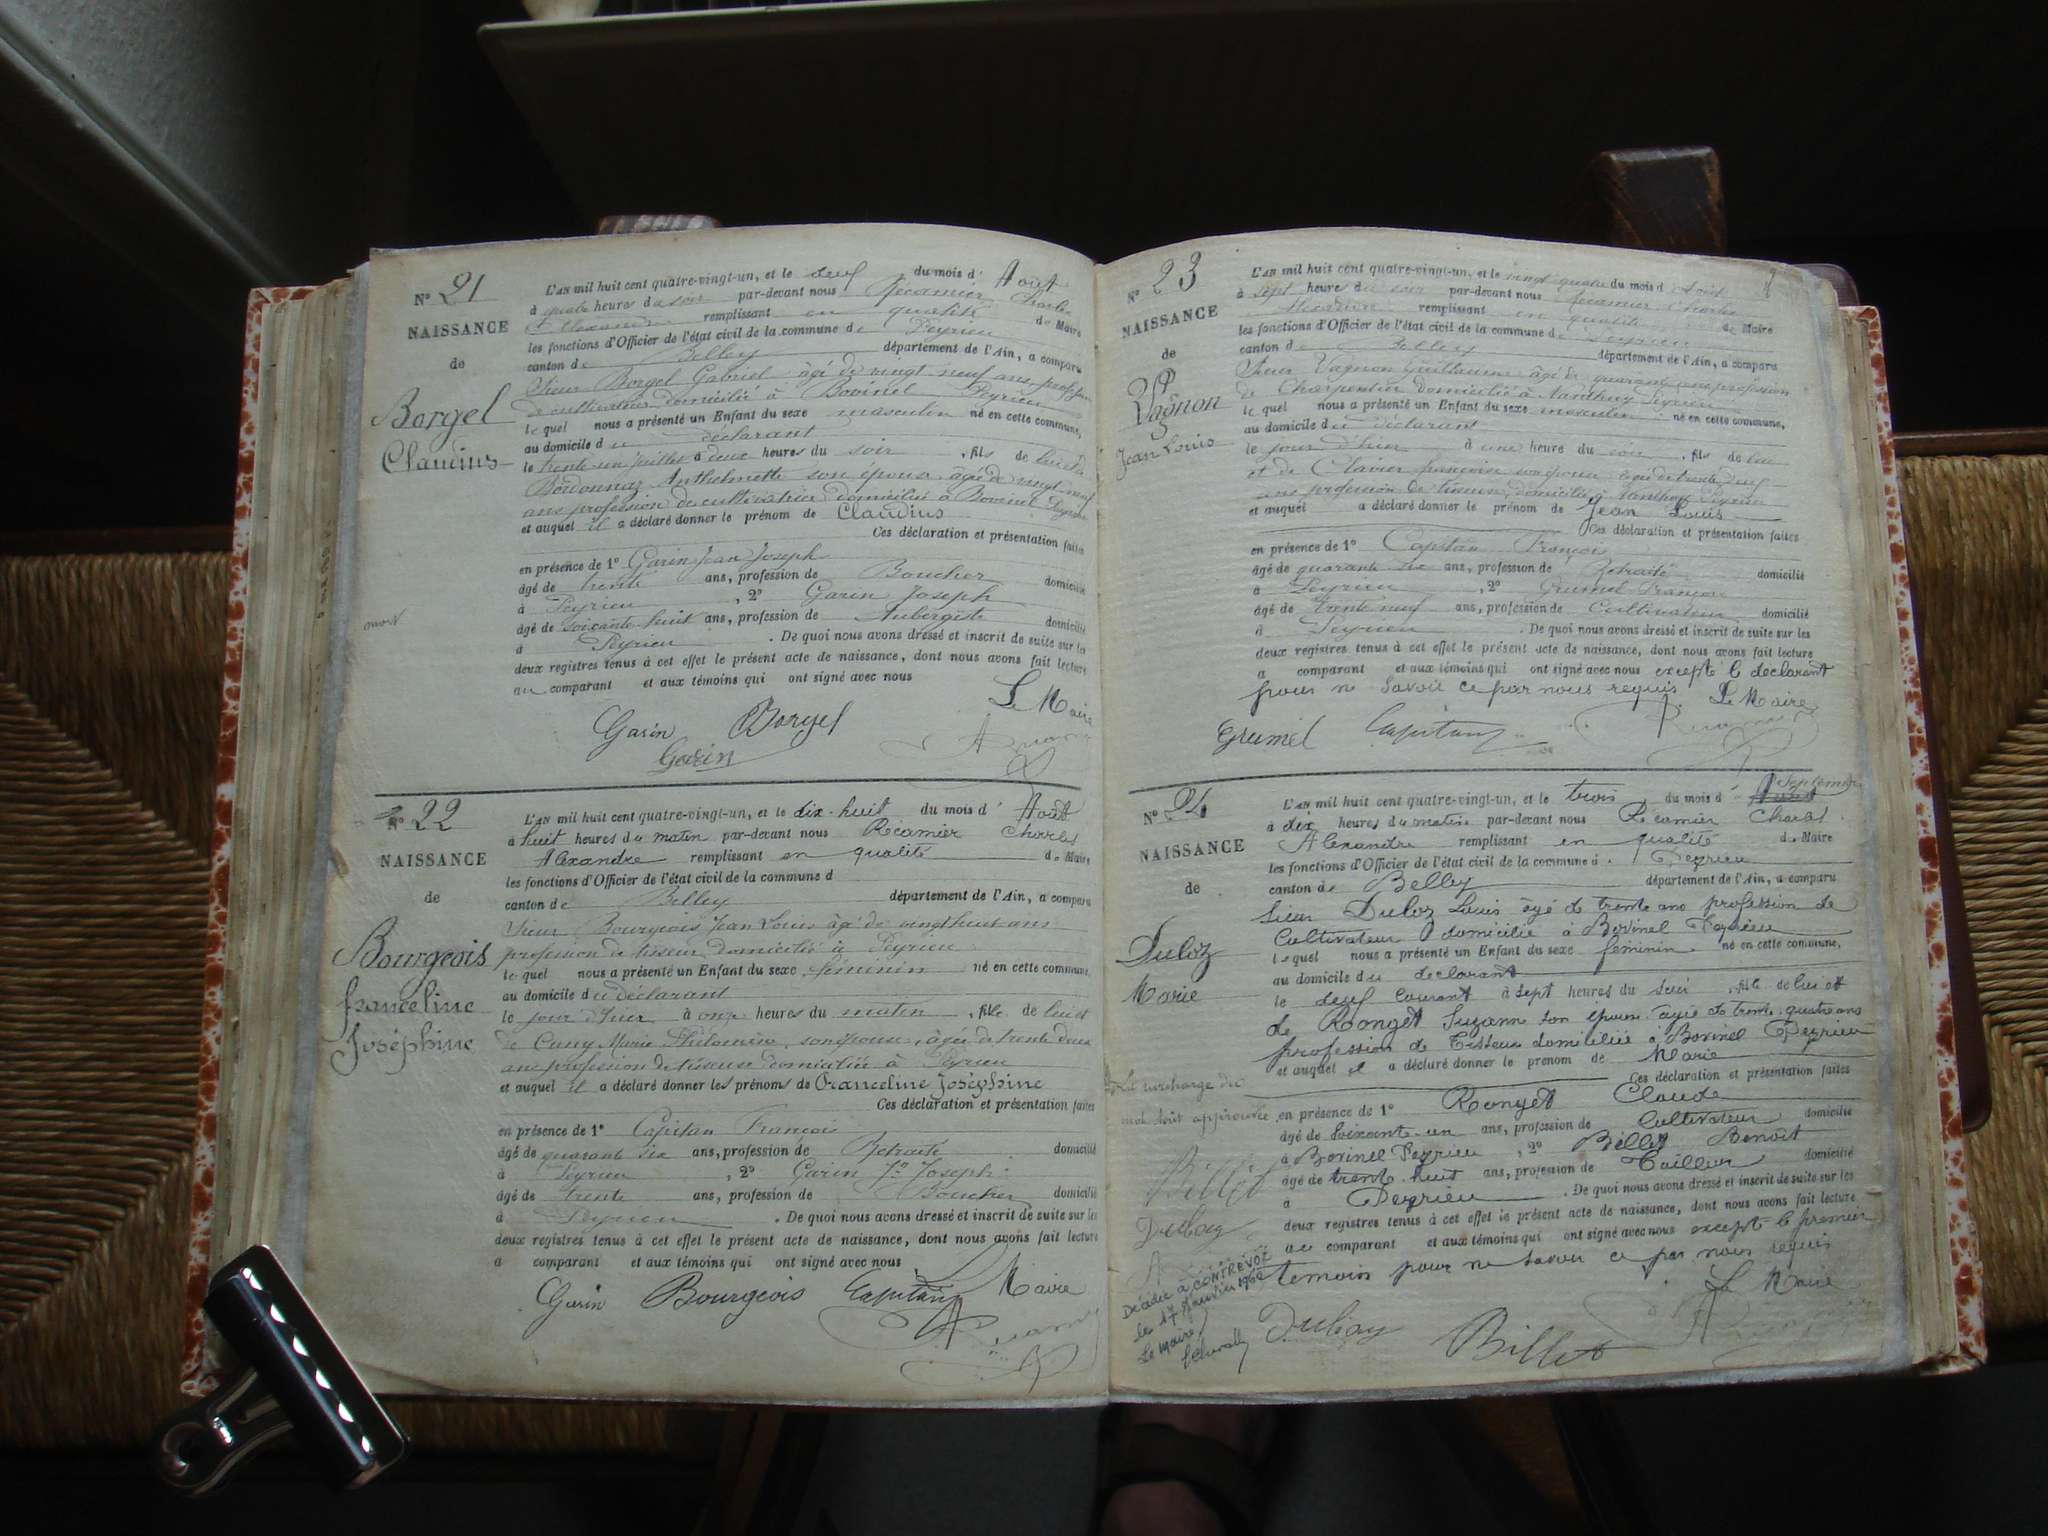 N° 21
NAISSANCE
de
Borgel
Claudius
mort
L'AN mil huit cent quatre-vingt-un, et le deux du mois d' Août
à quatre heures du soir par-devant nous Récamier Charles
Alexandre remplissant en qualité de Maire
les fonctions d'Officier de l'état civil de la commune de Peyrieu
canton de Belley département de l'Ain, a comparu
Sieur Borgel Gabriel âgé de vingt neuf ans profession
de cultivateur domicilié à Bovinel Peyrieu
lequel nous a présenté un Enfant du sexe masculin né en cette commune,
au domicile du déclarant
le trente un juillet à deux heures du soir, fils de lui et de
Bordonnaz Anthelmette son épouse âgée de vingt neuf
ans profession de cultivatrice domiciliée à Bovinel Peyrieu
et auquel il a déclaré donner le prénom de Claudius
Ces déclaration et présentation faites
en présence de 1° Garin Jean Joseph
âgé de trente ans, profession de Boucher domicilié
à Peyrieu, 2° Garin Joseph
âgé de soixante-huit ans, profession de Aubergiste domicilié
à Peyrieu. De quoi nous avons dressé et inscrit de suite sur les
deux registres tenus à cet effet le présent acte de naissance, dont nous avons fait lecture
au comparant et aux témoins qui ont signé avec nous
Le Maire
Garin Borgel
Garin
N° 22
NAISSANCE
de
Bourgeois
Franceline
Joséphine
L'AN mil huit cent quatre-vingt-un, et le dix-huit du mois d' Août
à huit heures du matin par-devant nous Récamier Charles
Alexandre remplissant en qualité de Maire
les fonctions d'Officier de l'état civil de la commune d
canton de Belley département de l'Ain, a comparu
Sieur Bourgeois Jean Louis âgé de vingt huit ans
profession de tisseur domicilié à Peyrieu
lequel nous a présenté un Enfant du sexe féminin né en cette commune,
au domicile du déclarant
le jour d'hier à onze heures du matin, fille de lui et
de Cuny Marie Philomène, son épouse, âgée de trente deux
ans profession de tisseuse domiciliée à Peyrieu
et auquel il a déclaré donner les prénoms de Franceline Joséphine
Ces déclaration et présentation faites
en présence de 1° Capitan François
âgé de quarante six ans, profession de Retraité domicilié
à Peyrieu, 2° Garin Jn Joseph
âgé de trente ans, profession de Boucher domicilié
à Peyrieu. De quoi nous avons dressé et inscrit de suite sur les
deux registres tenus à cet effet le présent acte de naissance, dont nous avons fait lecture
a comparant et aux témoins qui ont signé avec nous
Le Maire
Garin Bourgeois Capitan
N° 23
NAISSANCE
de
Vagnon
Jean Louis
L'AN mil huit cent quatre-vingt-un, et le vingt quatre du mois d' Août
à sept heure du soir par-devant nous Récamier Charles
Alexandre remplissant en qualité de Maire
les fonctions d'Officier de l'état civil de la commune de Peyrieu
canton de Belley département de l'Ain, a comparu
Sieur Vagnon Guillaume âgé de quarante ans profession
de Charpentier domicilié à Nanthuy Peyrieu
lequel nous a présenté un Enfant du sexe masculin né en cette commune,
au domicile du déclarant
le jour d'hier à une heure du soir, fils de lui
et de Clavier françoise son épouse âgée de trente deux
ans profession de tisseuse, domiciliée à Nanthuy Peyrieu
et auquel a déclaré donner le prénom de Jean Louis
Ces déclaration et présentation faites
en présence de 1° Capitan François
âgé de quarante six ans, profession de Retraité domicilié
à Peyrieu, 2° Grumel François
âgé de trente neuf ans, profession de Cultivateur domicilié
à Peyrieu. De quoi nous avons dressé et inscrit de suite sur les
deux registres tenus à cet effet le présent acte de naissance, dont nous avons fait lecture
a comparant et aux témoins qui ont signé avec nous excepté le déclarant
pour ne savoir ce par nous requis Le Maire
Grumel Capitan
N° 24
NAISSANCE
de
Duboz
Marie
L'AN mil huit cent quatre-vingt-un, et le trois du mois d' Août Septembre
à dix heures du matin par-devant nous Récamier Charles
Alexandre remplissant en qualité de Maire
les fonctions d'Officier de l'état civil de la commune d Peyrieu
canton de Belley département de l'Ain, a comparu
Sieur Duboz Louis âgé de trente ans profession de
Cultivateur domicilié à Bovinel Peyrieu
lequel nous a présenté un Enfant du sexe féminin né en cette commune,
au domicile du déclarant
le deux Courant à sept heures du soir, fille de lui et
de Rouget Suzanne son épouse âgée de trente quatre ans
profession de Tisseuse domiciliée à Bovinel Peyrieu
et auquel il a déclaré donner le prénom de Marie
Ces déclaration et présentation faites
en présence de 1° Rouget Claude
âgé de soixante-un ans, profession de Cultivateur domicilié
à Bovinel Peyrieu, 2° Billet Benoit
âgé de trente huit ans, profession de Tailleur domicilié
à Peyrieu. De quoi nous avons dressé et inscrit de suite sur les
deux registres tenus à cet effet le présent acte de naissance, dont nous avons fait lecture
au comparant et aux témoins qui ont signé avec nous excepté le premier
temoin pour ne savoir ce par nous requis
Le Maire
Duboz Billet
La surcharge du
mot Août approuvée
Billet
Duboz
Décédée à CONTREVOZ
le 17 Janvier 1960
Le Maire